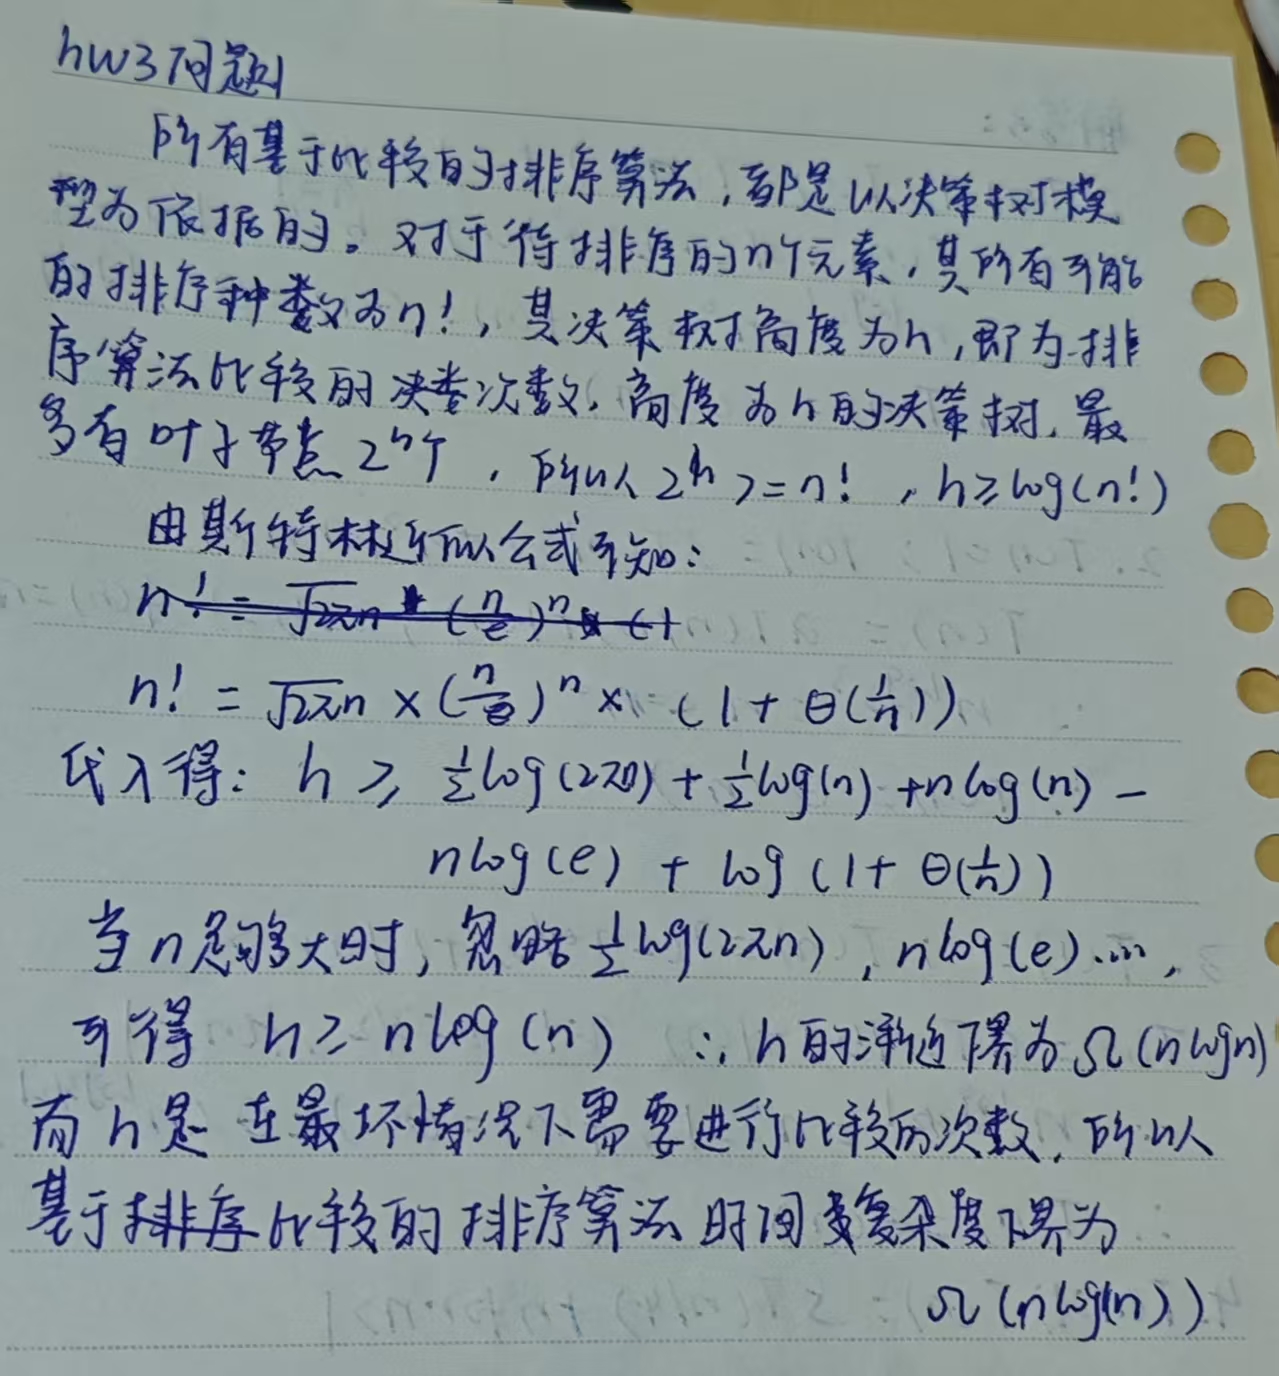 hw3问题1
所有基于比较的排序算法,都是以决策树模
型为依据的。对于待排序的n个元素,其所有可能
的排序种数为n!,其决策树高度为h,即为排
序算法比较的决策次数,高度为h的决策树,最
多有叶子节点2^h个,所以2^h>=n!,h≥log(n!)
由斯特林近似公式可知:
n! = √2πn * (n/e)^n * (1
n! = √2πn × (n/e)^n × (1 + Θ(1/n))
代入得: h ≥ 1/2log(2π) + 1/2log(n) + nlog(n) -
nlog(e) + log(1 + Θ(1/n))
当n足够大时,忽略1/2log(2πn),nlog(e)...,
可得 h≥nlog(n) ∴h的渐近下界为Ω(nlogn)
而h是在最坏情况下需要进行比较的次数,所以
基于排序比较的排序算法时间复杂度下界为
Ω(nlog(n))